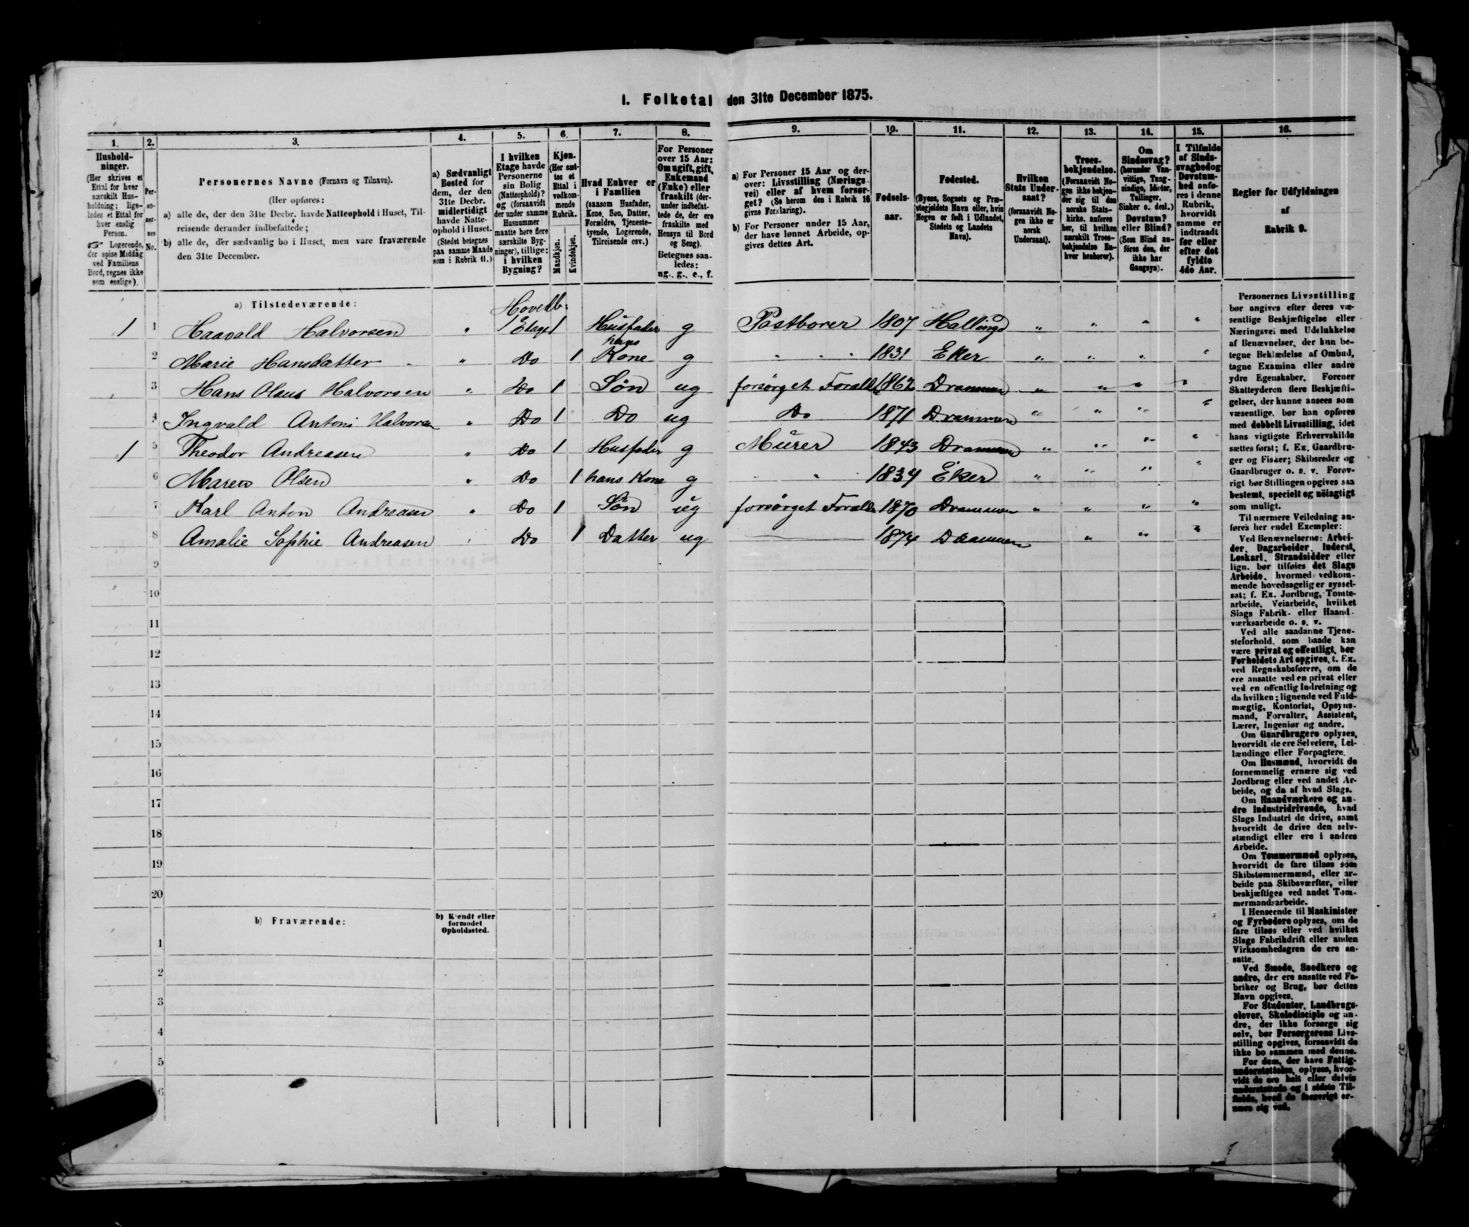 1. Folketal den 31te December 1875.
1. 2. 3. 4. 5. 6. 7. 8. 9. 10. 11. 12. 13. 14. 15. 16.
Hushold-
ninger.
(Her skrives et
Ettal for hver
særskilt Hus-
holdning; lige-
ledes et Ettal for
hver enslig
Person.
☞ Logerende,
der spise Middag
ved Familiens
Bord, regnes ikke
som enslige).
Per-
so-
ner-
nes
No.
Personernes Navne (Fornavn og Tilnavn).
(Her opføres:
a) alle de, der den 31te Decbr. havde Natteophold i Huset, Til-
reisende derunder indbefattede;
b) alle de, der sædvanlig bo i Huset, men vare fraværende
den 31te December.
a) Sædvanligt
Bosted for
dem, der den
31te Decbr.
midlertidigt
havde Natte-
ophold i Huset.
(Stedet betegnes
paa samme Maade
som i Rubrik 11.)
I hvilken
Etage havde
Personerne
sin Bolig
(Natteophold)?
og (forsaavidt
der under samme
Husnummer
maatte høre flere
særskilte Byg-
ninger), tillige:
i hvilken
Bygning?
Kjøn.
(Her sæt-
tes et
Ettal i
vedkom-
mende
Rubrik.
Mandkjøn.
Kvindekjøn.
Hvad Enhver er
i Familien
(saasom Husfader,
Kone, Søn, Datter,
Forældre, Tjeneste-
tyende, Logerende,
Tilreisende osv.)
For Personer
over 15 Aar:
Om ugift, gift,
Enkemand
(Enke) eller
fraskilt (der-
under indbefat-
tede de, der ere
fraskilte med
Hensyn til Bord
og Seng).
Betegnes saa-
ledes:
ug., g., e., f.
a) For Personer 15 Aar og der-
over: Livsstilling (Nærings-
vei) eller af hvem forsør-
get? (Se herom den i Rubrik 16
givne Forklaring).
b) For Personer under 15 Aar,
der have lønnet Arbeide, op-
gives dettes Art.
Fødsels-
aar.
Fødested.
(Byens, Sognets og Præ-
stegjeldets Navn eller, hvis
Nogen er født i Udlandet,
Stedets og Landets
Navn).
Hvilken
Stats Under-
saat?
(forsaavidt No-
gen ikke er
norsk
Undersaat).
Troes-
bekjendelse.
(Forsaavidt No-
gen ikke bekjen-
der sig til den
norske Stats-
kirke, anføres
her, til hvilken
særskilt Troes-
bekjendelse En-
hver henhører).
Om
Sindssvag?
(herunder Van-
vittige, Tung-
sindige, Idioter,
Tullinger,
Sinker o. desl.)
Døvstum?
eller Blind?
(Som Blind an-
føres den, der
ikke har
Gangsyn).
I Tilfælde
af Sinds-
svaghed og
Døvstum-
hed anfø-
res i denne
Rubrik,
hvorvidt
samme er
indtraadt
før eller
efter det
fyldte
4de Aar.
Regler for Udfyldningen
af
Rubrik 9.
a) Tilstedeværende: Hovedb.
1 1 Haavald Halvorsen 1 Etage 1 Husfader g 1807
2 Marie Hansdatter „ Do 1 hans Kone g „ „ „ 1831 Eker „ „ „ „
3 Hans Olaus Halvorsen „ Do 1 Søn ug forsørget 1862 Drammen „ „ „ „
4 Ingvald Anton Halvorsen „ Do 1 Do ug Do 1871 Drammen „ „ „ „
1 5 Theodor Andreasen „ Do 1 Husfader g Murer 1843 Drammen „ „ „ „
6 Maren Olsen „ Do 1 hans Kone g „ „ 1834 Eker „ „ „ „
7 Karl Anton Andreasen „ Do 1 Søn ug forsørget 1870 Drammen „ „ „ „
8 Amalie Sophie Andreasen „ Do 1 Datter ug 1874 Drammen „ „ „
9
10
11
12
13
14
15
16
17
18
19
20
b) Fraværende: b) Kjendt eller
formodet
Opholdssted.
1
2
3
4
5
6
Personernes Livsstilling
bør angives efter deres væ-
sentlige Beskjæftigelse eller
Næringsvei med Udelukkelse
af Benævnelser, der kun be-
tegne Beklædelse af Ombud,
tagne Examina eller andre
ydre Egenskaber. Forener
Skatteyderen flere Beskjæfti-
gelser, der kunne ansees som
væsentlige, bør han opføres
med dobbelt Livsstilling, idet
hans vigtigste Erhvervskilde
sættes først; f. Ex. Gaardbru-
ger og Fisker; Skibsreder og
Gaardbruger o. s. v. Forøv-
rigt bør Stillingen opgives saa
bestemt, specielt og nøiagtigt
som muligt.
Til nærmere Veiledning an-
føres her endel Exempler:
Ved Benævnelserne: Arbei-
der, Dagarbeider, Inderst,
Løskarl, Strandsidder eller
lign. bør tilføies det Slags
Arbeide, hvormed vedkom-
mende hovedsagelig er syssel-
sat; f. Ex. Jordbrug, Tomte-
arbeide, Veiarbeide, hvilket
Slags Fabrik- eller Haand-
værksarbeide o. s. v.
Ved alle saadanne Tjene-
steforhold, som baade kan
være privat og offentligt, bør
Forholdets Art opgives, t. Ex.
ved Regnskabsførere, om de
ere ansatte ved en privat eller
ved en offentlig Indretning og
da hvilken; lignende ved Fuld-
mægtig, Kontorist, Opsyns-
mand, Forvalter, Assistent,
Lærer, Ingeniør og andre.
Om Gaardbrugere oplyses,
hvorvidt de ere Selveiere, Lei-
lændinge eller Forpagtere.
Om Husmænd, hvorvidt de
fornemmelig ernære sig ved
Jordbrug eller ved andet Ar-
beide, og da af hvad Slags.
Om Haandværkere og an-
dre Industridrivende, hvad
Slags Industri de drive, samt
hvorvidt de drive den selv-
stændigt eller ere i andres
Arbeide.
Om Tømmermænd oplyses,
hvorvidt de fare tilsøs som
Skibstømmermænd, eller ar-
beide paa Skibsværfter, eller
beskjæftiges ved andet Tøm-
mermandsarbeide.
I Henseende til Maskinister
og Fyrbødere oplyses, om de
fare tilsøs eller ved hvilket
Slags Fabrikdrift eller anden
Virksomhedsgren de ere an-
satte.
Ved Smede, Snedkere og
andre, der ere ansatte ved Fa-
briker og Brug, bør dettes
Navn opgives.
For Studenter, Landbrugs-
elever, Skoledisciple og an-
dre, der ikke forsørge sig
selv, bør Forsørgerens Livs-
stilling opgives, forsaavidt de
ikke bo sammen med denne.
For dem, der have Fattig-
understøttelse, oplyses, hvor-
vidt de ere helt eller delvis
understøttede og i sidste Til-
fælde, hvad de forøvrigt er-
nære sig ved.